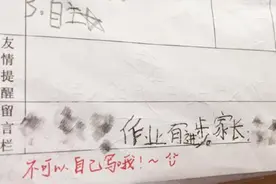 3.自主长
友情提醒留言栏
作业有进步。家长.
不可以自己写哦!~